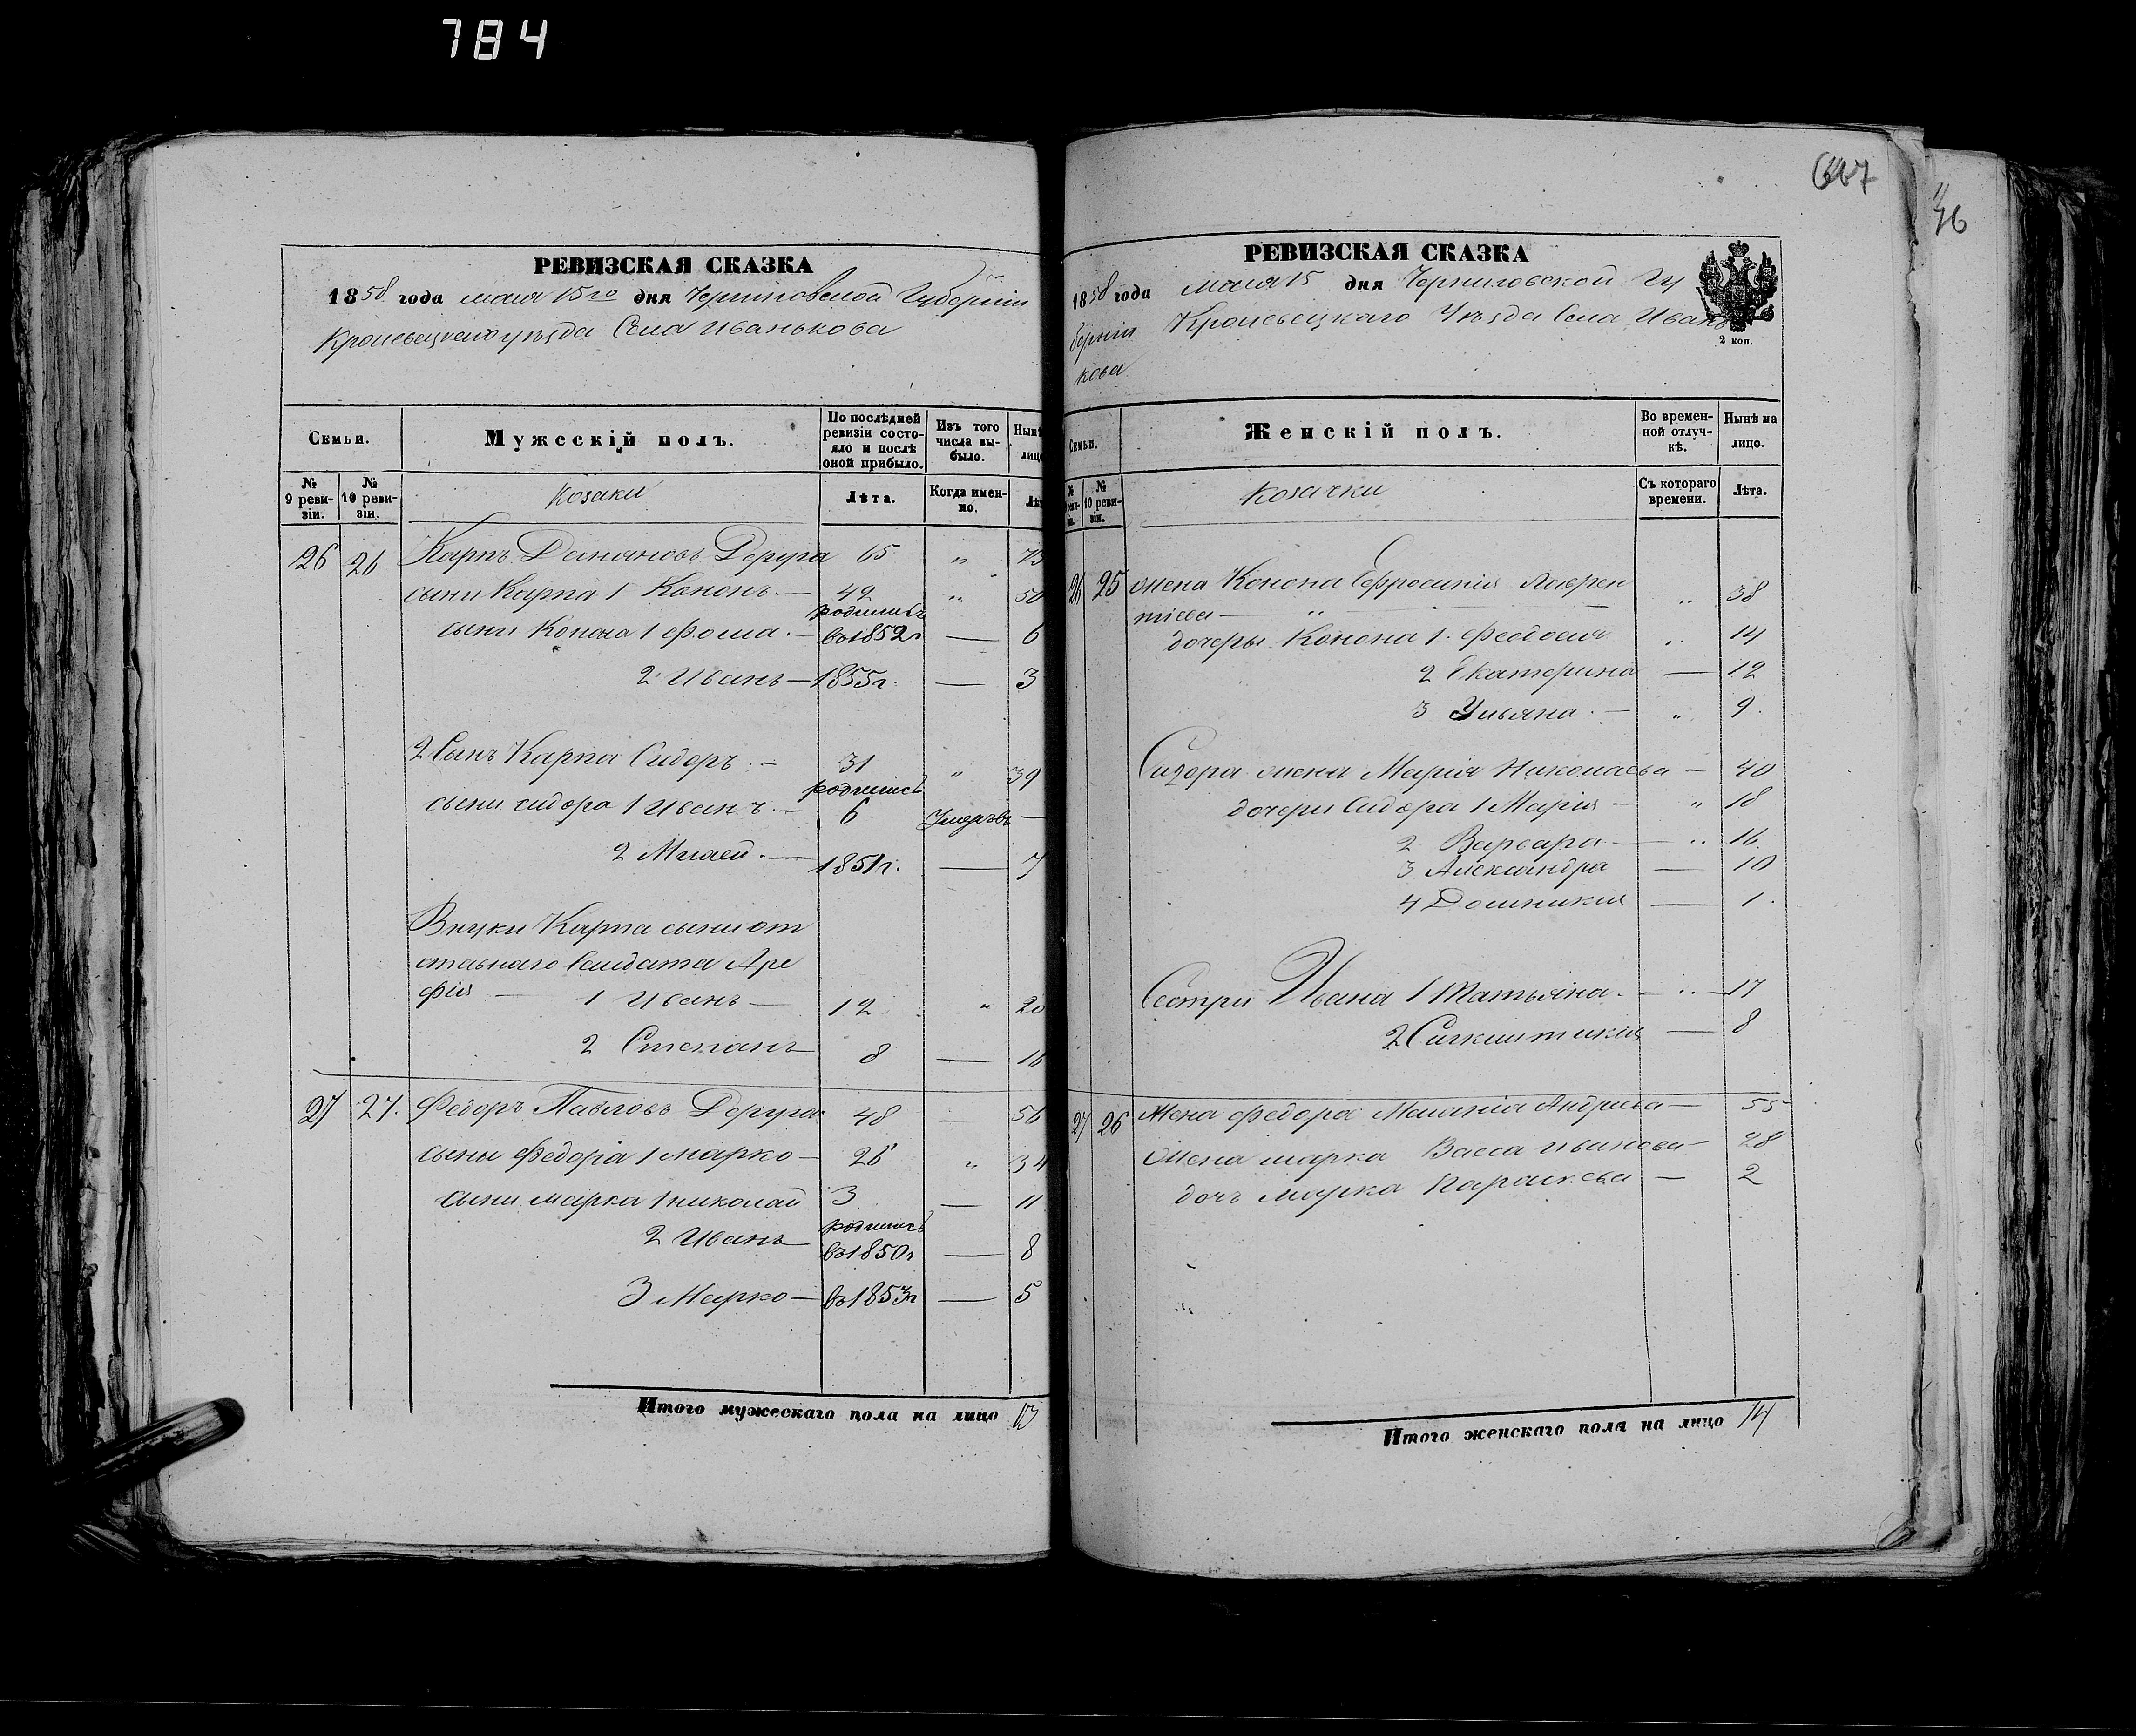 784
667
46
РЕВИЗСКАЯ СКАЗКА
1858 года мая 15го дня Черниговской Губернии
Кролевецкого уезда Села Иванькова
Семьи.
Мужескій полъ.
По послѣдней ревизіи состояло и послѣ оной прибыло.
Изъ того числа выбыло.
Нынѣ лицо
№ 9 реви-зіи.
№ 10 реви-зіи.
Козаки
Лѣта.
Когда имен-но.
Лѣт
26 26 Карпъ Демяновъ Деруга 65 " 73
сыни Карпа 1 Кононъ. — 42 " 50
сыни Конона 1 Фома. — родились въ 1852г — 6
2 Иванъ — 1855г. — 3
2 Сынъ Карпа Сидоръ. — 31 " 39
сыни сидора 1 Иванъ. — родились 6 Умеръ —
2 Мисаей. — 1851г. — 7
Внуки Карпа сыни от
ставнаго Солдата Аре
фія — 1 Иванъ — 12 " 20
2 Степанъ 8 — 16
27 27. Федоръ Павловъ Деруга 48 — 56
сыни Федора 1 марко — 26 " 34
сыни марка 1 николай 3 — 11
2 Иванъ родились въ 1850г — 8
3 Марко — въ 1853г — 5
Итого мужескаго пола на лицо 13
РЕВИЗСКАЯ СКАЗКА
1858 года мая 15 дня Черниговской Гу
берніи Кролевецкаго Уѣзда Села Ивань
кова
2 коп.
Семьи.
Женскій полъ.
Во времен-ной отлуч-кѣ.
Нынѣ на лицо.
№ 10 реви-зіи.
Козачки
Съ котораго времени.
Лѣта.
26 25 жена Конона Ефросинія Лаврен
тіева — " — " 38
дочеры Конона 1. Феодосия " 14
2 Екатерина — 12
3 Ульяна. — " 9.
Сидора жена Марія Николаева — 40
дочери Сидора 1 Марія — " 18
2 Варвара — " 16
3 Александра — 10
4 Домникия — 1.
Сестри Ивана 1 Татьяна. — " — 17
2 — 8
27 26 Жена Федора Маланія Андреева — 55
Жена марка Васса иванова — 28
дочъ марка Параскева — 2
Итого женскаго пола на лицо 14